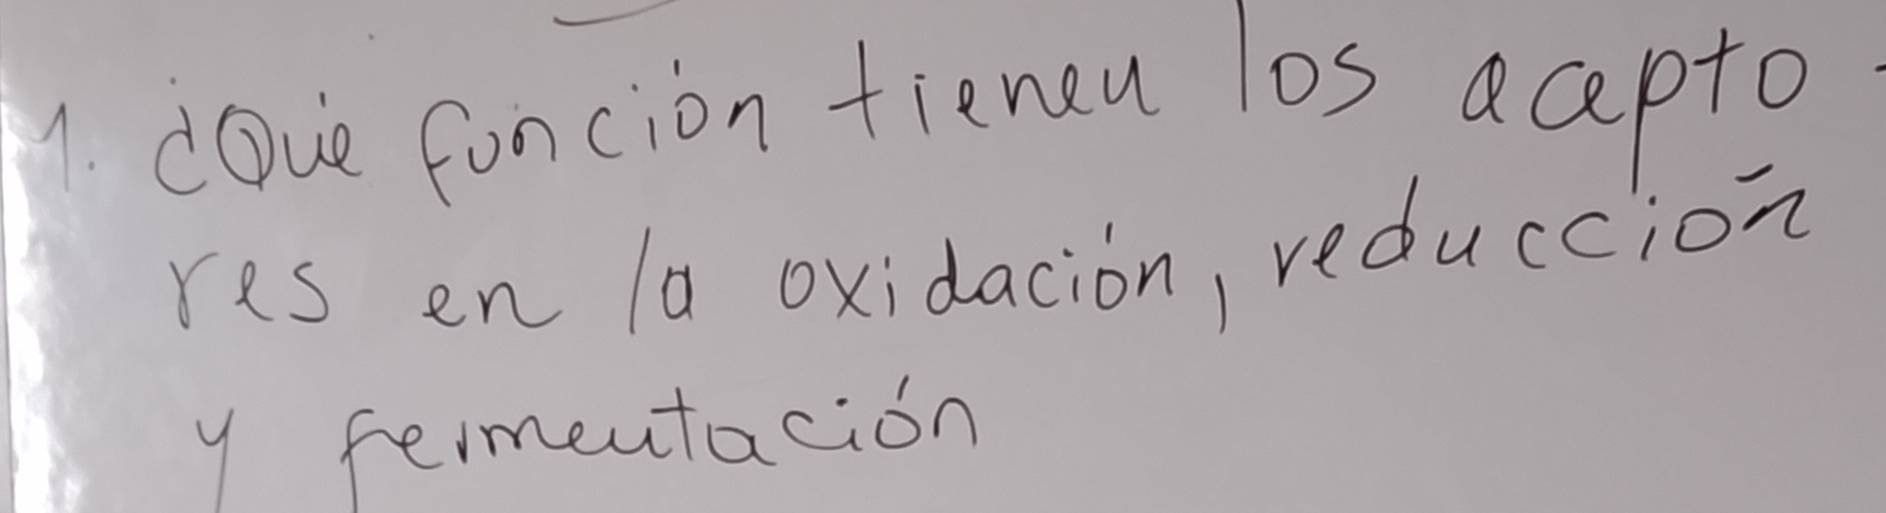 1. ¿Qué función tienen los acepto-
res en la oxidación, reducción
y fermentación